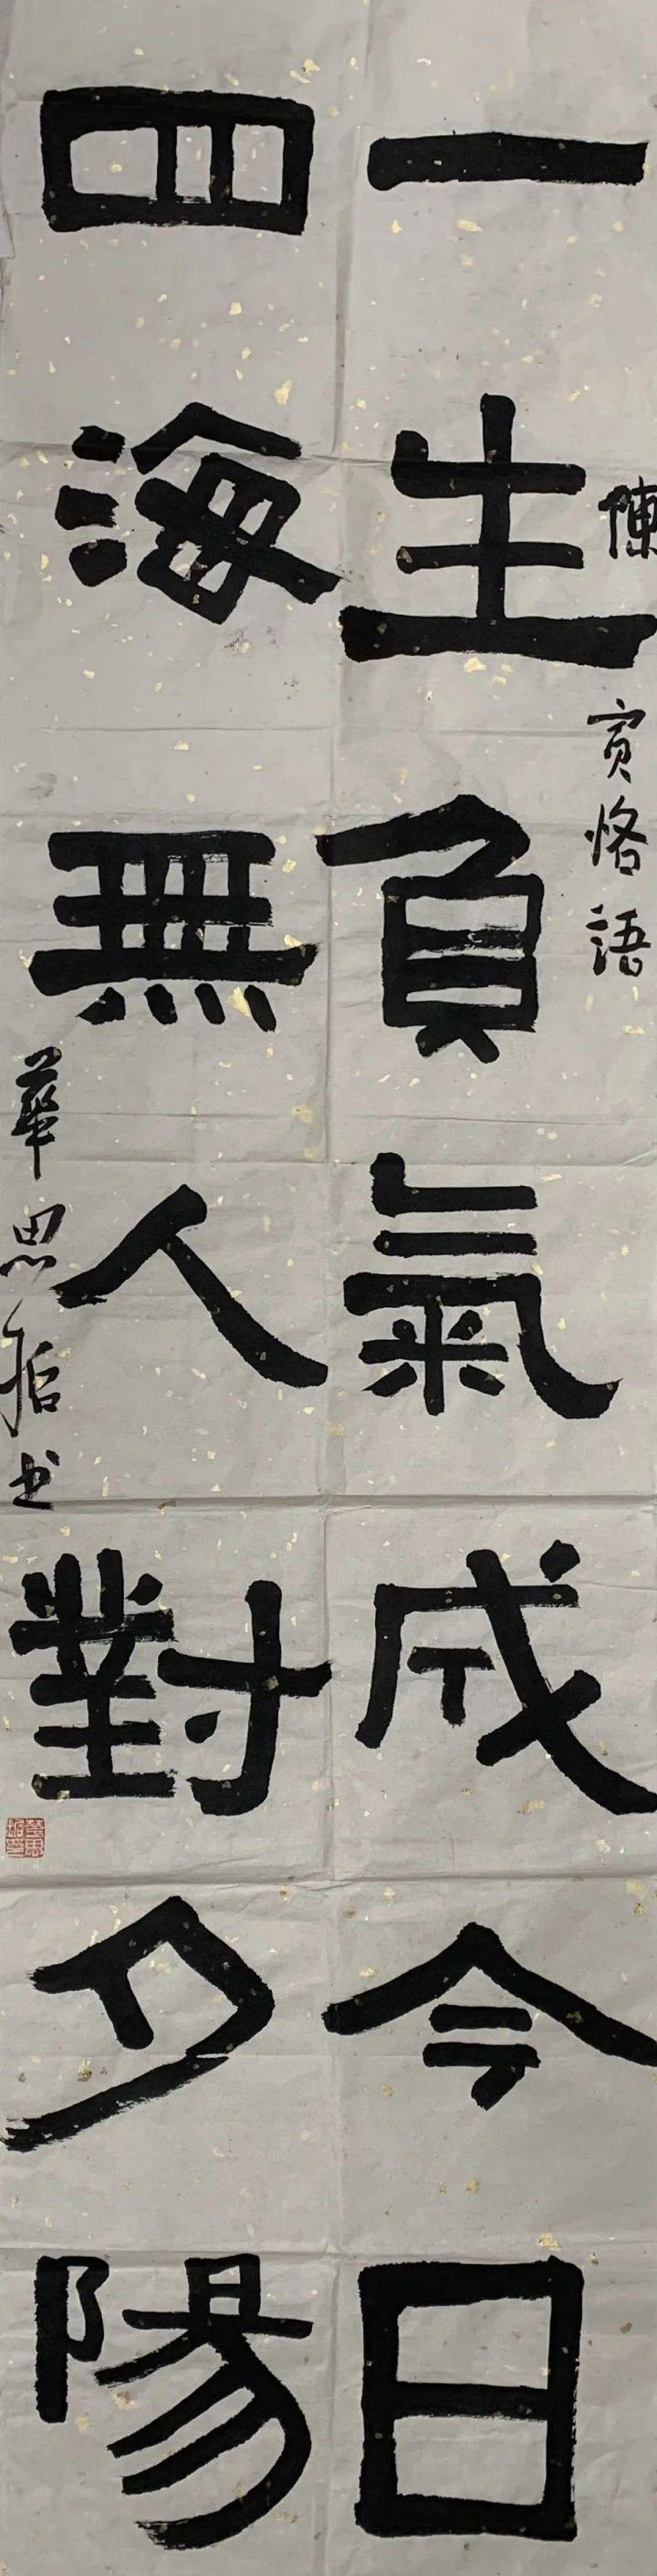 一生負氣成今日
陳寅恪語
四海無人對夕陽
華思哲書